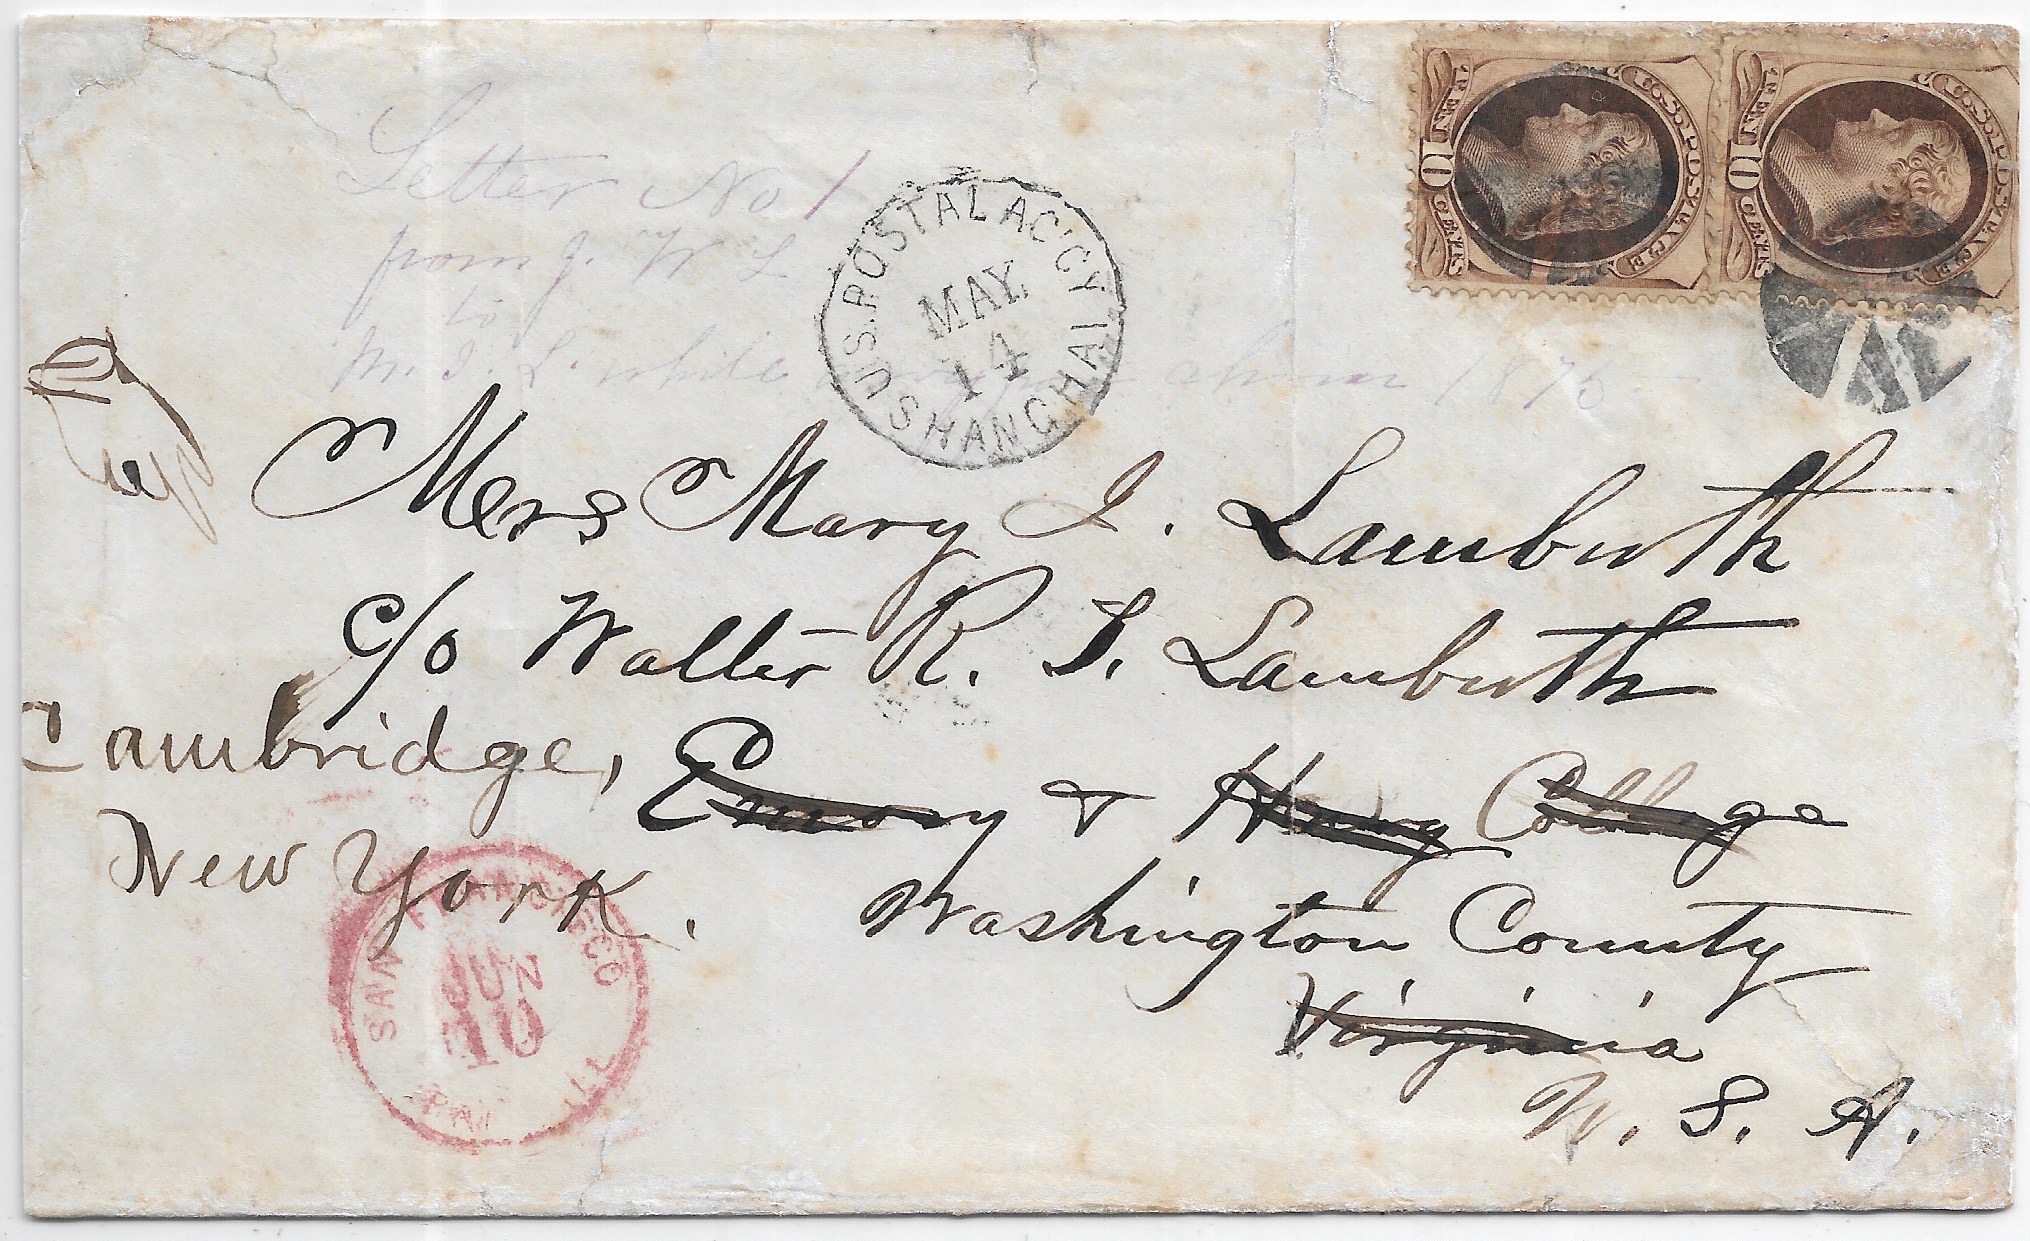 U.S. POSTAGE
TEN 10 CENTS
U.S. POSTAGE
TEN 10 CENTS
Letter No 1
from J. W L
to
M. I. L. while China 1876
U.S. POSTAL AG'CY
MAY.
14
SHANGHAI
Mrs Mary I. Lambuth
c/o Walter R. S. Lambuth
Cambridge, Emory & Henry College
New York. Washington County
Virginia
U. S. A.
SAN FRANCISCO
JUN
10
PAID ALL